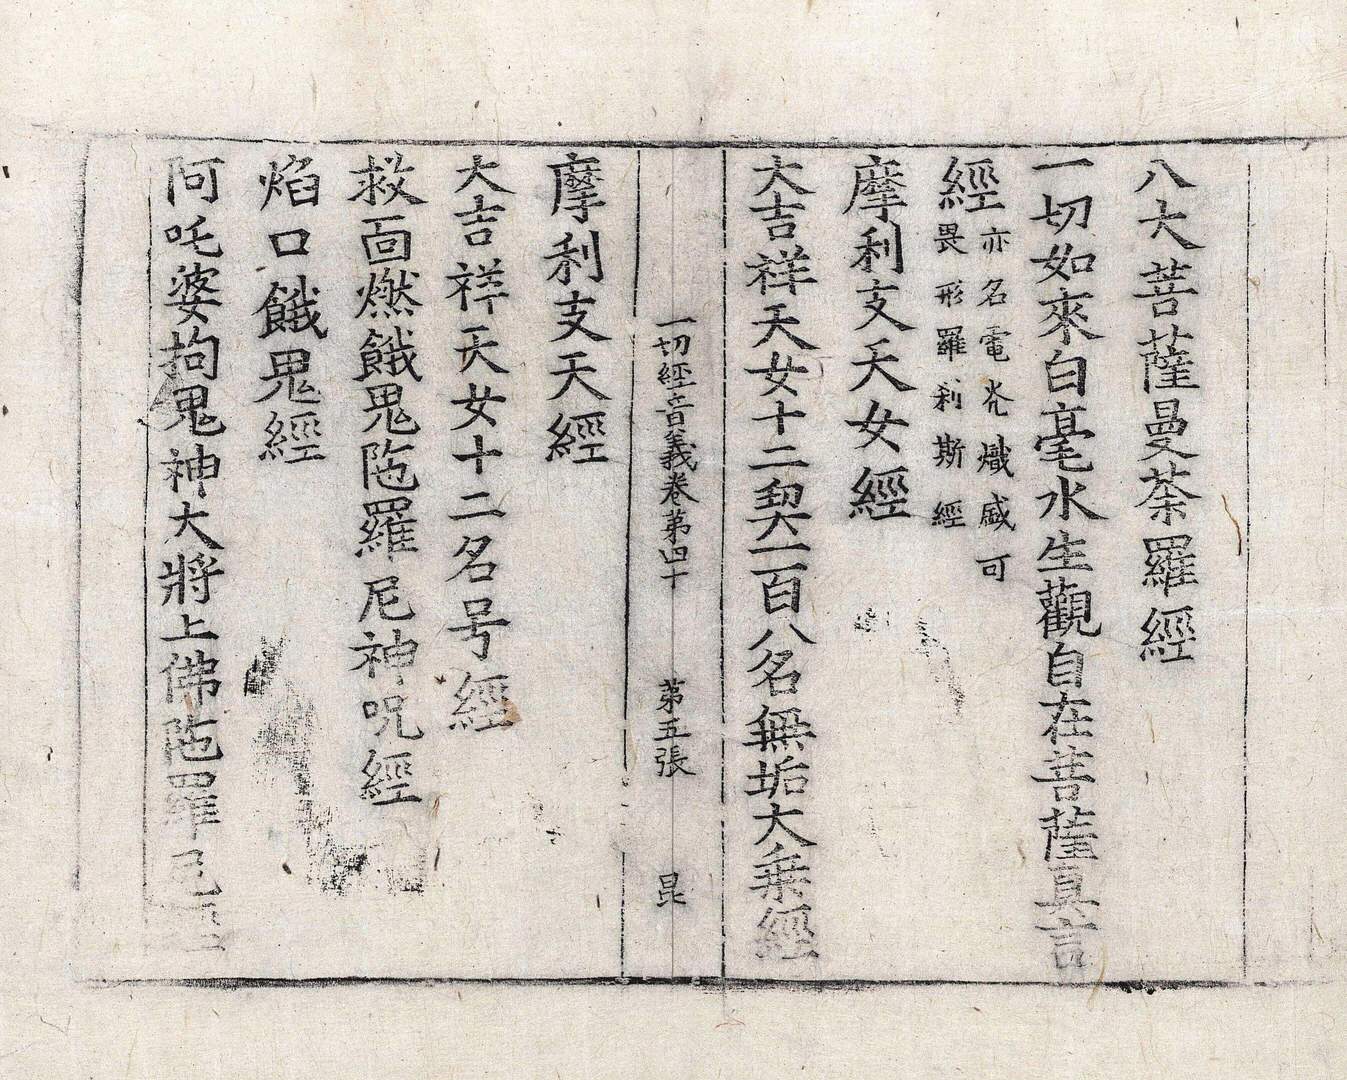 八大菩薩曼荼羅經
一切如來白毫水生觀自在菩薩真言
經亦名電光熾盛可
畏形羅刹斯經
摩利支天女經
大吉祥天女十二契一百八名無垢大乗經
一切經音義卷第四十 第五張 昆
摩利支天經
大吉祥天女十二名号經
救面燃餓鬼陁羅尼神呪經
焰口餓鬼經
阿吒婆拘鬼神大將上佛陁羅尼